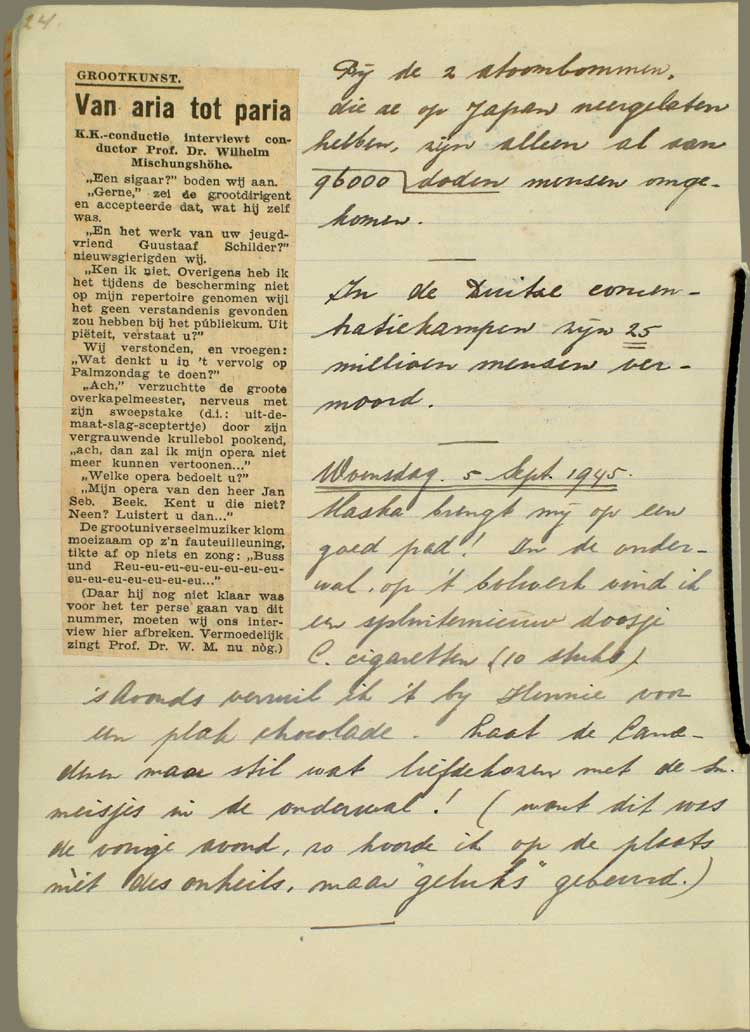 24.
GROOTKUNST.
Van aria tot paria
K.K.-conductie interviewt con-
ductor Prof. Dr. Wilhelm
Mischungshöhe.
„Een sigaar?” boden wij aan.
„Gerne,” zei de grootdirigent
en accepteerde dat, wat hij zelf
was.
„En het werk van uw jeugd-
vriend Guustaaf Schilder?”
nieuwsgierigden wij.
„Ken ik niet. Overigens heb ik
het tijdens de bescherming niet
op mijn repertoire genomen wijl
het geen verstandenis gevonden
zou hebben bij het públiekum. Uit
piëteit, verstaat u?”
Wij verstonden, en vroegen:
„Wat denkt u in 't vervolg op
Palmzondag te doen?”
„Ach,” verzuchtte de groote
overkapelmeester, nerveus met
zijn sweepstake (d.i.: uit-de-
maat-slag-sceptertje) door zijn
vergrauwende krullebol pookend,
„ach, dan zal ik mijn opera niet
meer kunnen vertoonen...”
„Welke opera bedoelt u?”
„Mijn opera van den heer Jan
Seb. Beek. Kent u die niet?
Neen? Luistert u dan...”
De grootuniverseelmuziker klom
moeizaam op z'n fauteuilleuning,
tikte af op niets en zong: „Buss
und Reu-eu-eu-eu-eu-eu-eu-eu-
eu-eu-eu-eu-eu-eu-eu...”
(Daar hij nog niet klaar was
voor het ter perse gaan van dit
nummer, moeten wij ons inter-
view hier afbreken. Vermoedelijk
zingt Prof. Dr. W. M. nu nòg.)
Bij de 2 atoombommen,
die ze op Japan neergelaten
hebben, zijn alleen al aan
96000 doden mensen omge-
komen.
In de Duitse concen-
tratiekampen zijn 25
millioen mensen ver-
moord.
Woensdag. 5 Sept. 1945.
Maska brengt mij op een
goed pad! In de onder-
wal, op 't bolwerk vind ik
een splinternieuw doosje
C. cigaretten (10 stuks)
's Avonds verruil ik 't bij Hennie voor
een plak chocolade. Laat de Cana-
dezen maar stil wat liefdekozen met de
meisjes in de onderwal! (want dit was
de vorige avond, zo hoorde ik op de plaats
niet des onheils, maar "geluks" gebeurd.)